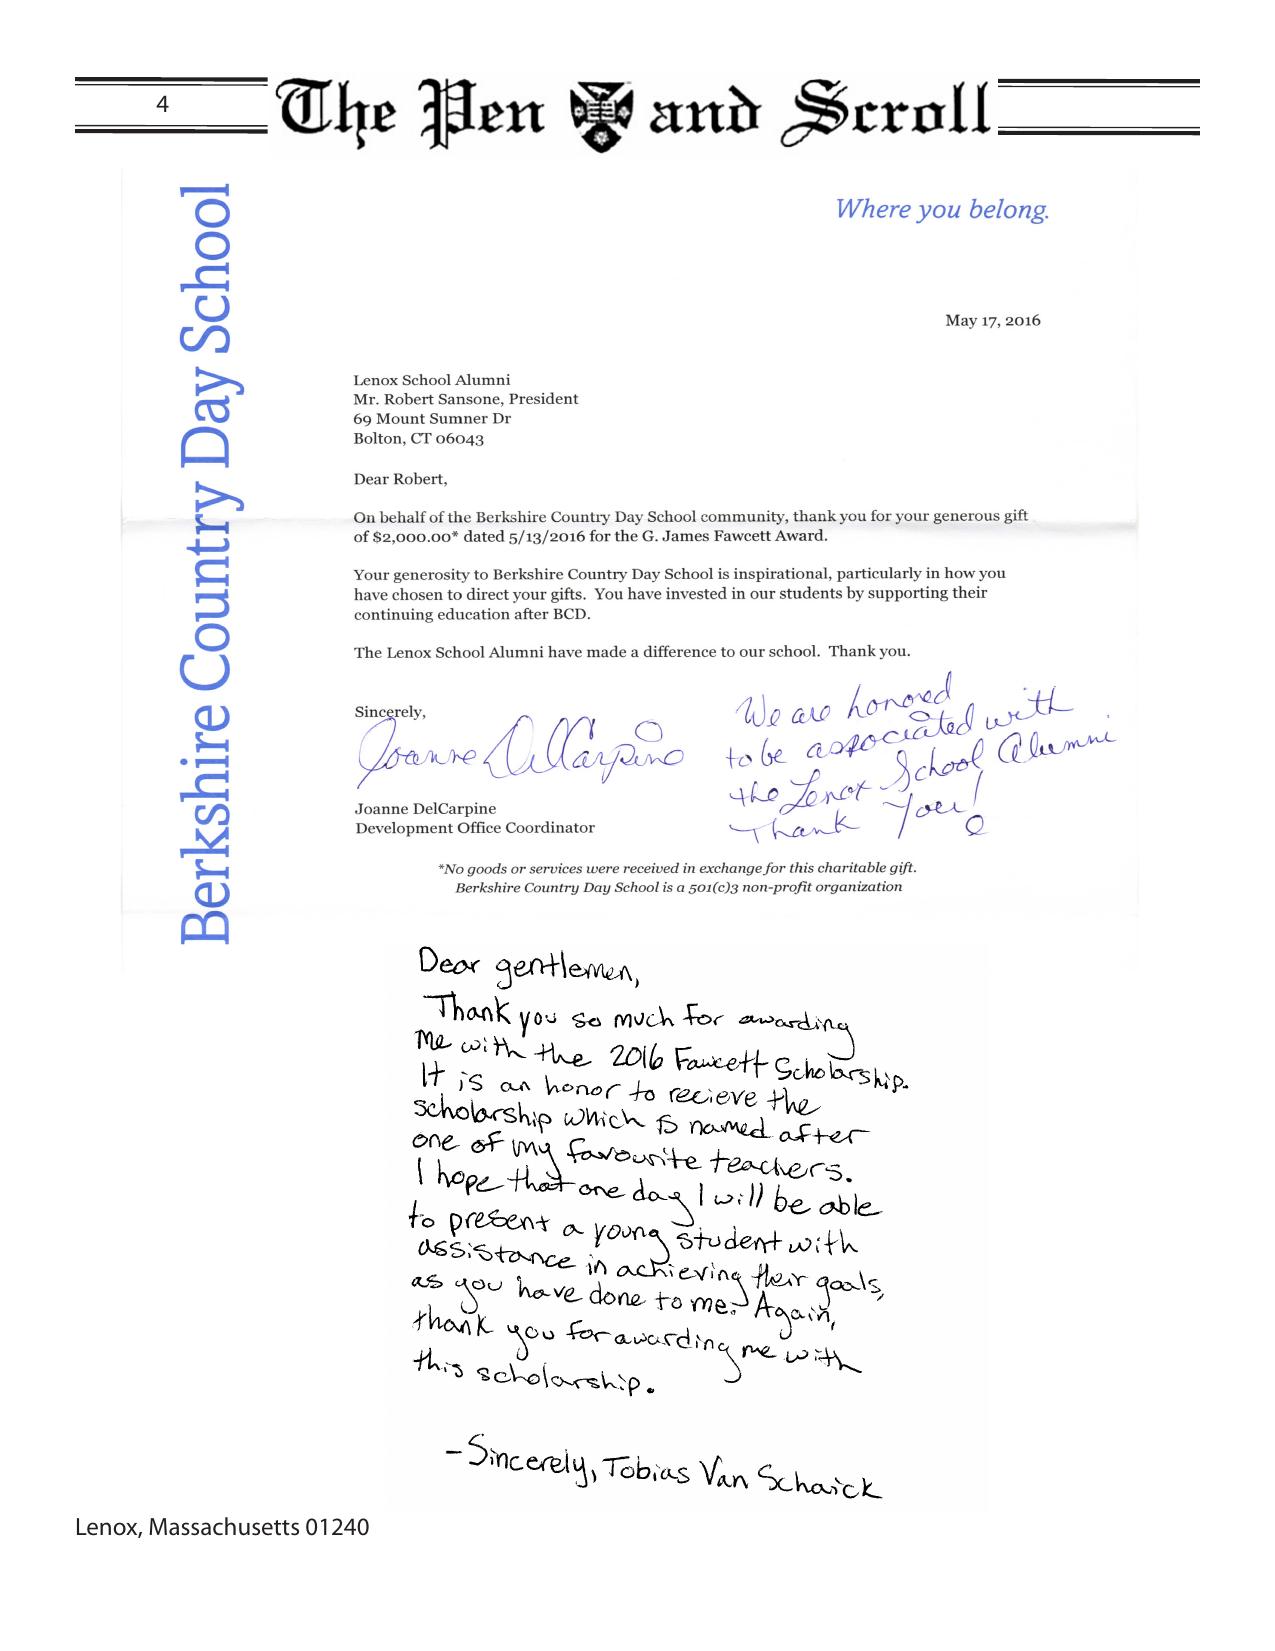 4
The Pen and Scroll
Berkshire Country Day School
Where you belong.
May 17, 2016
Lenox School Alumni
Mr. Robert Sansone, President
69 Mount Sumner Dr
Bolton, CT 06043
Dear Robert,
On behalf of the Berkshire Country Day School community, thank you for your generous gift
of $2,000.00* dated 5/13/2016 for the G. James Fawcett Award.
Your generosity to Berkshire Country Day School is inspirational, particularly in how you
have chosen to direct your gifts.  You have invested in our students by supporting their
continuing education after BCD.
The Lenox School Alumni have made a difference to our school.  Thank you.
Sincerely,
Joanne DelCarpino
We are honored
to be associated with
the Lenox School Alumni
Thank You!
Joanne DelCarpine
Development Office Coordinator
*No goods or services were received in exchange for this charitable gift.
Berkshire Country Day School is a 501(c)3 non-profit organization
Dear gentlemen,
Thank you so much for awarding
me with the 2016 Fawcett Scholarship.
It is an honor to recieve the
scholarship which is named after
one of my favourite teachers.
I hope that one day I will be able
to present a young student with
assistance in achieving their goals,
as you have done to me. Again,
thank you for awarding me with
this scholarship.
-Sincerely, Tobias Van Schaick
Lenox, Massachusetts 01240